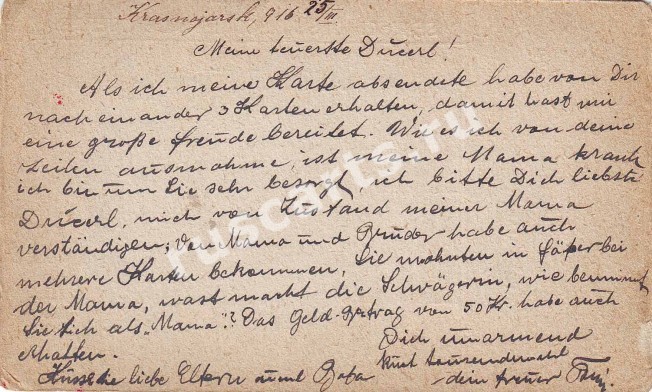 Krasnojarsk, 916 25/III
Meine teuerste Ducerl!
Als ich meine Karte absendete habe von Dir
nacheinander 3 Karten erhalten, damit hast mir
eine große Freude bereitet. Wie es ich von deine
Zeilen ausnahme, ist meine Mama krank
ich bin um Sie sehr besorgt, ich bitte Dich liebste
Ducerl, mich von Zustand meiner Mama
verständigen; Von Mama und Bruder habe auch
mehrere Karten bekommen, Sie wohnten in bei
der Mama, wast macht die Schwägerin, wie benimmt
Sie sich als „Mama"? Das Geld-Betrag von 50 Kr. habe auch
erhalten. Dich umarmend
küst tausendmal
Küsse die liebe Eltern und dein treuer
ruscards.ru